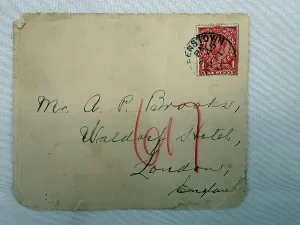 ENSTOWN
ONE PENNY
Mr. A. P. Brooks,
Waldorf Hotel,
London,
England